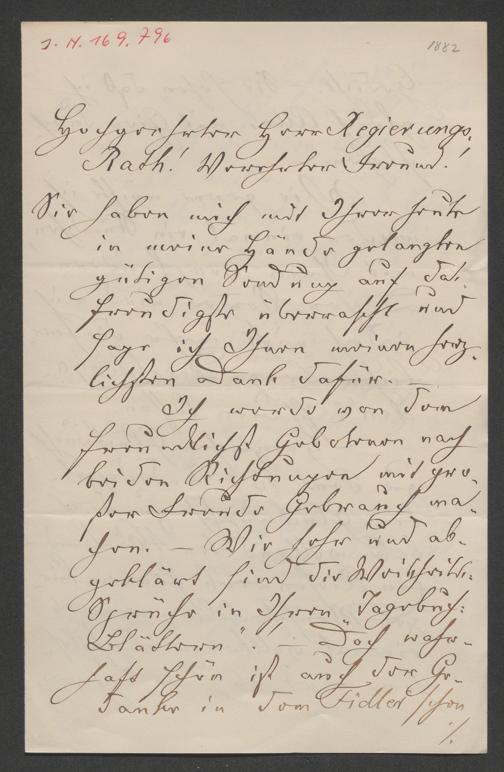 I. N. 169.796
1882
Hochgeehrter Herr Regierungs-
Rath! Verehrter Freund!
Sie haben mich mit Ihrer heute
in meine Hände gelangten
gütigen Sendung auf das
freudigste überrascht und
sage ich Ihnen meinen herz-
lichsten Dank dafür. —
Ich werde von dem
freundlichst Gebotenen nach
beiden Richtungen mit gro-
ßer Freude Gebrauch ma-
chen. — Wie hehr und ab-
geklärt sind die Weisheits-
Sprüche in Ihren "Tagebuch-
Blättern"! — Doch wahr-
haft schön ist auch der Ge-
danke in dem Fidler schon
./.